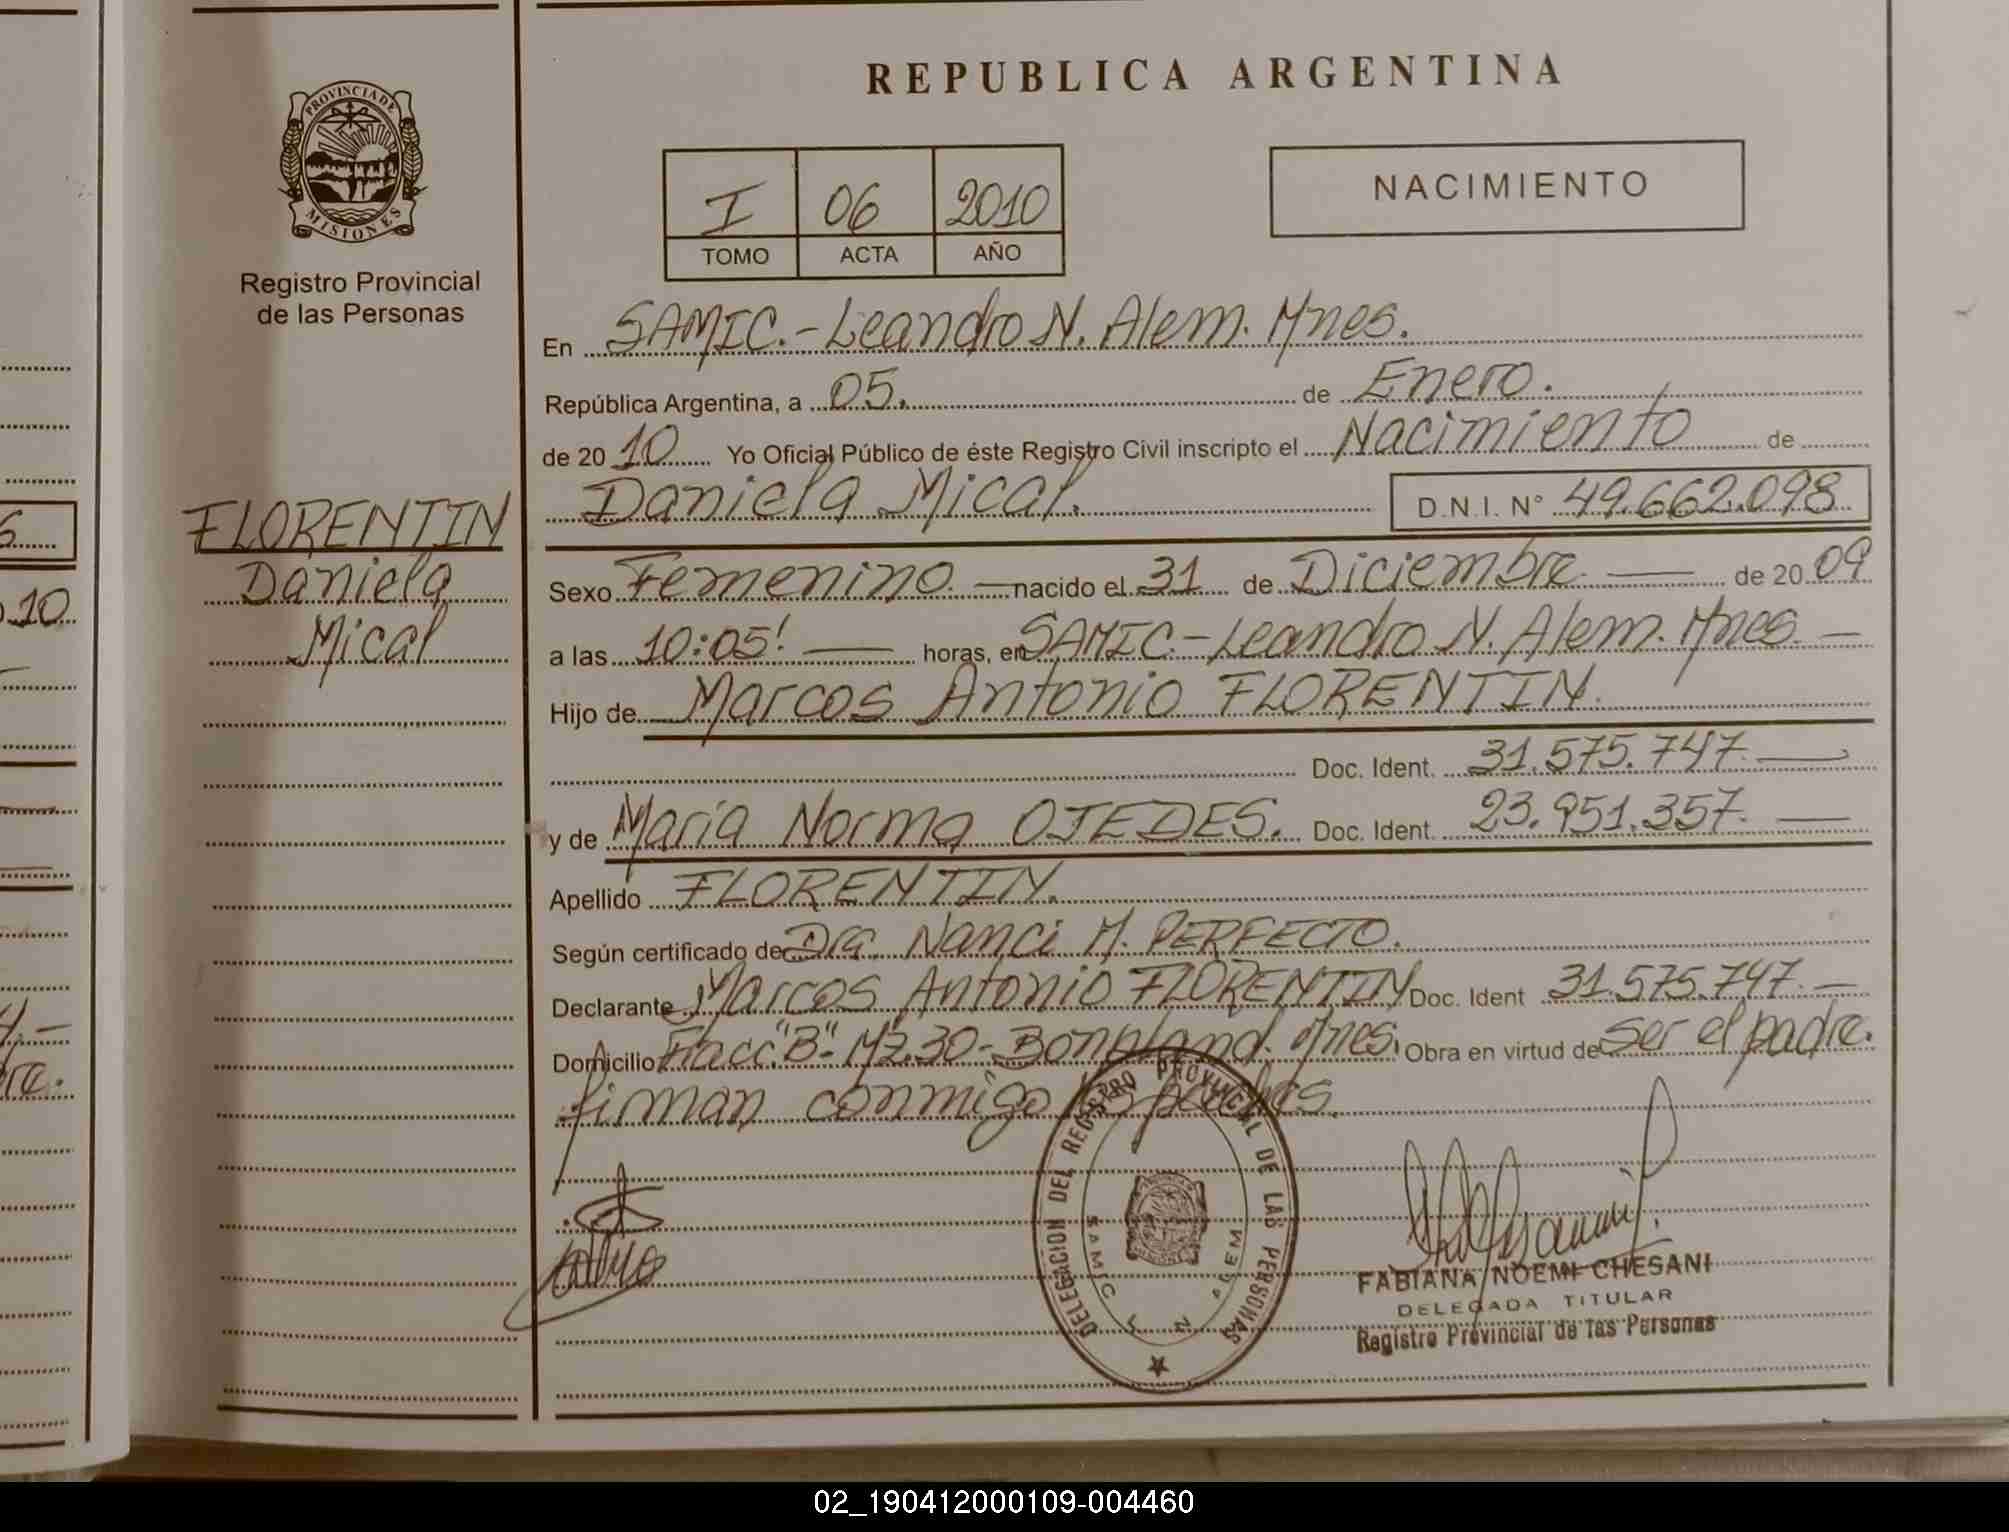 REPUBLICA ARGENTINA
PROVINCIA DE
MISIONES
Registro Provincial
de las Personas
I 06 2010
TOMO ACTA AÑO
NACIMIENTO
En SAMIC.- Leandro N. Alem. Mnes.
República Argentina, a 05. de Enero.
de 20 10 Yo Oficial Público de éste Registro Civil inscripto el Nacimiento de
Daniela Mical. D.N.I. N° 49.662.098
FLORENTIN
Daniela
Mical
Sexo Femenino. — nacido el 31 de Diciembre — de 20 09
a las 10:05! — horas, en SAMIC.- Leandro N. Alem. Mnes. —
Hijo de Marcos Antonio FLORENTIN.
Doc. Ident. 31.575.747. —
y de María Norma OJEDES. Doc. Ident. 23.951.357. —
Apellido FLORENTIN.
Según certificado de Dra. Nanci M. PERFECTO.
Declarante Marcos Antonio FLORENTIN Doc. Ident 31.575.747. —
Domicilio Fracc. "B". Mz.30- Bonpland. Mnes. Obra en virtud de ser el padre.
firman conmigo los padres.
DELEGACION DEL REGISTRO PROVINCIAL DE LAS PERSONAS
SAMIC L N ALEM
FABIANA NOEMI CHESANI
DELEGADA TITULAR
Registro Provincial de las Personas
02_190412000109-004460